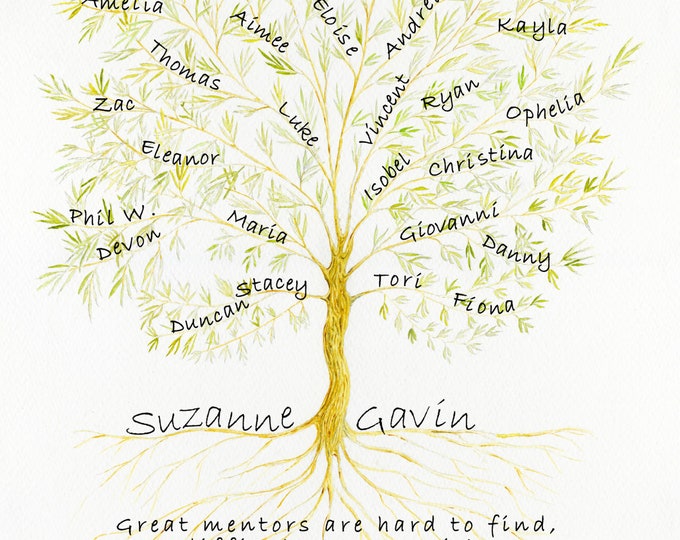 Amelia
Aimee
Eloise
Kayla
Thomas
Zac
Luke
Vincent
Ryan
Ophelia
Eleanor
Isobel
Christina
Phil W.
Devon
Maria
Giovanni
Danny
Stacey
Tori
Duncan
Fiona
Suzanne
Gavin
Great mentors are hard to find,